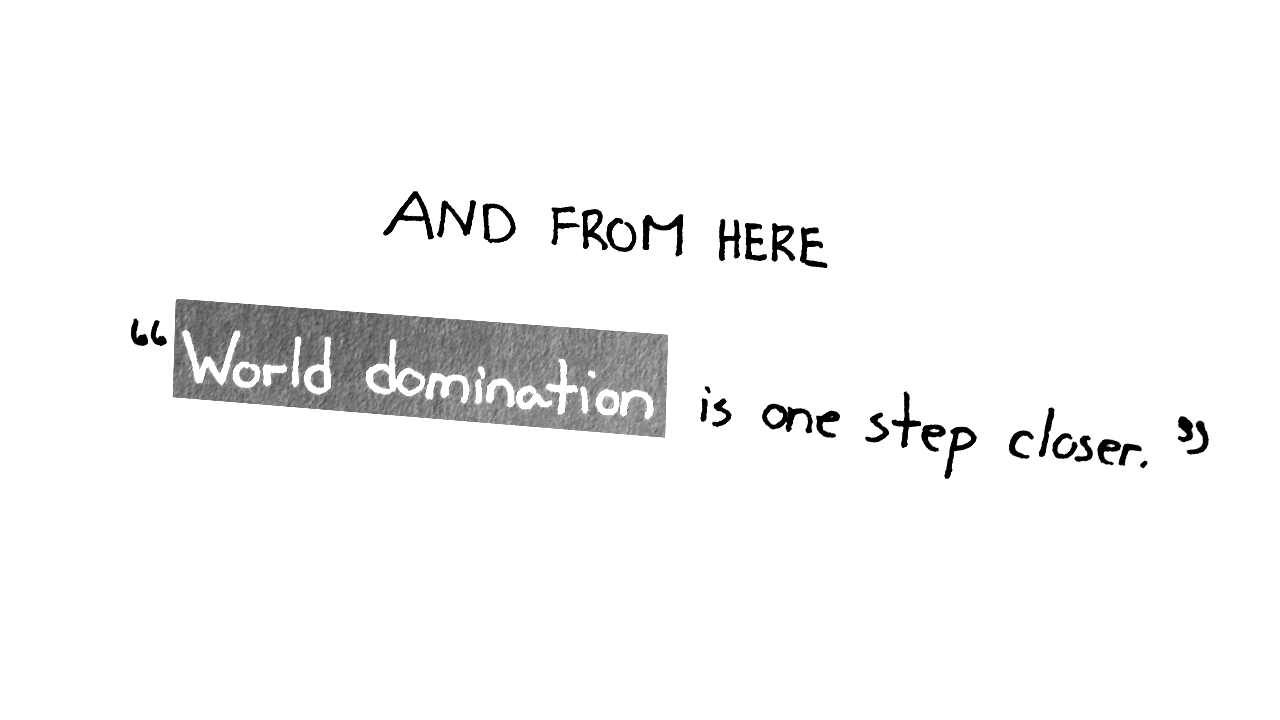 AND FROM HERE
“World domination is one step closer.”